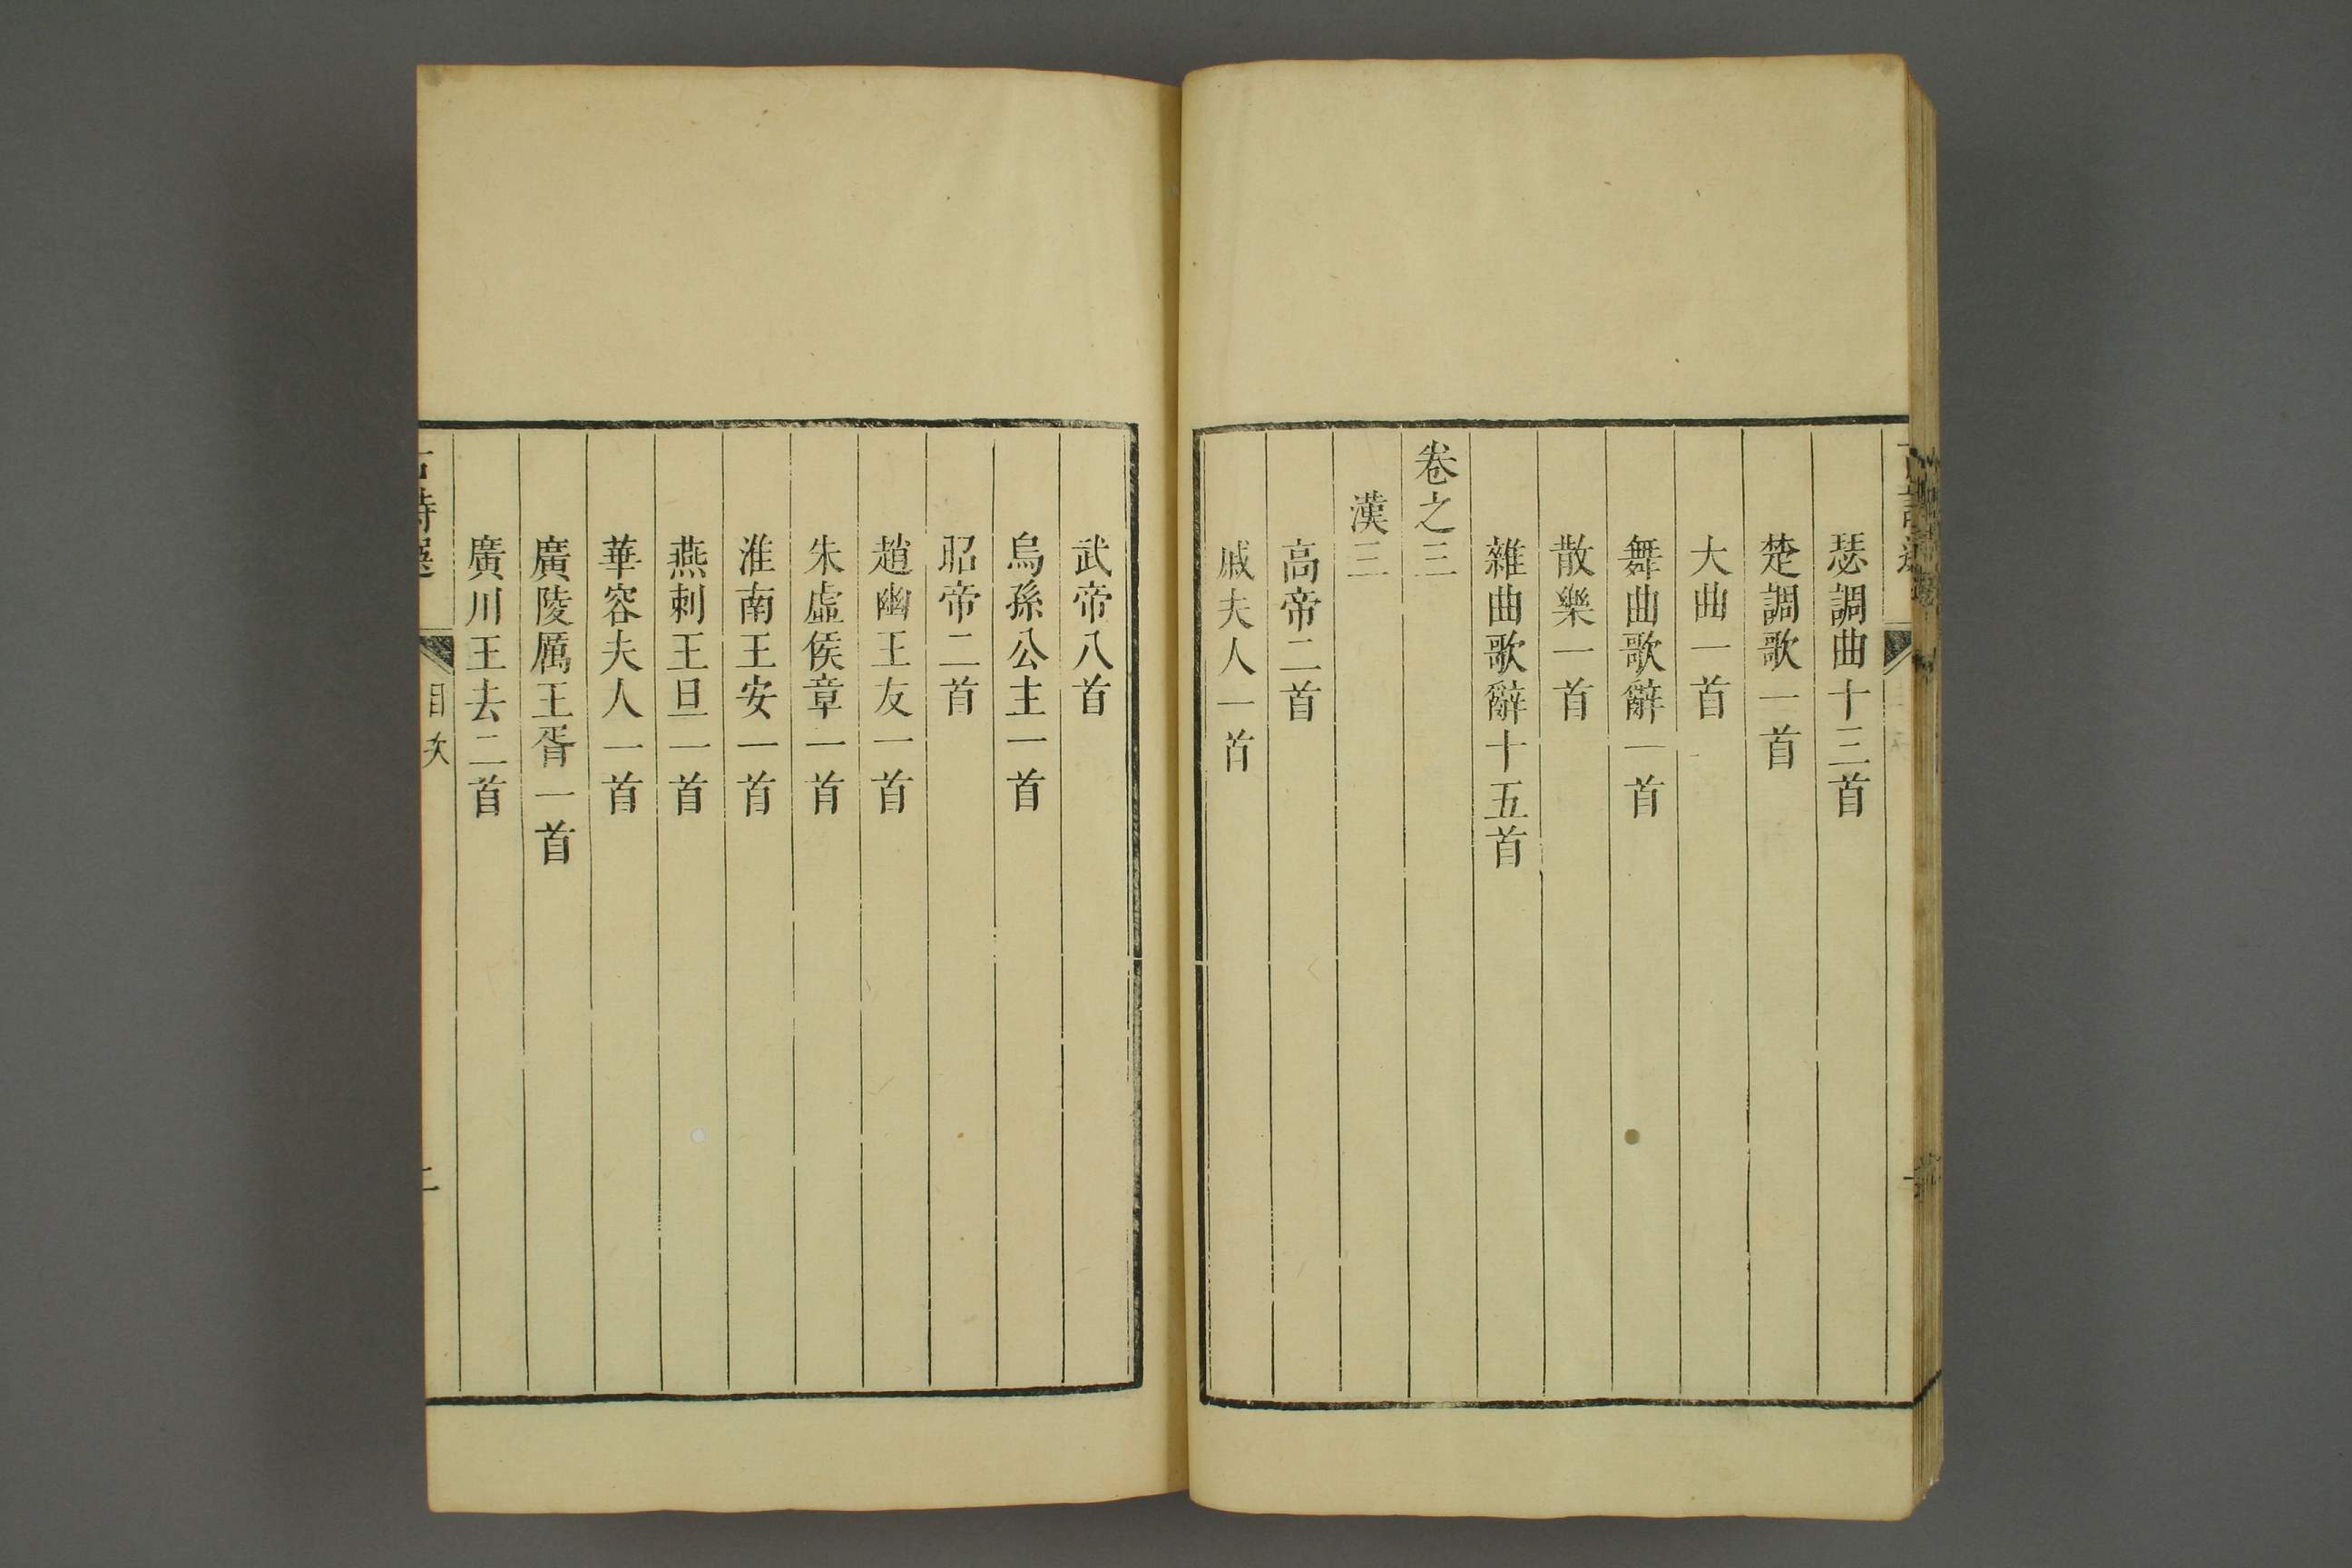 瑟調曲十三首
楚調歌一首
大曲一首
舞曲歌辭一首
散樂一首
雜曲歌辭十五首
卷之三
漢三
高帝二首
戚夫人一首
武帝八首
烏孫公主一首
昭帝二首
趙幽王友一首
朱虛侯章一首
淮南王安一首
燕刺王旦一首
華容夫人一首
廣陵厲王胥一首
廣川王去二首
古詩選
目次
二